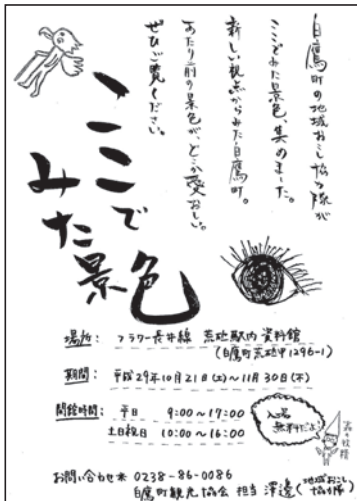 白鷹町の地域おこし協力隊が
ここでみた景色、集めました。
新しい視点からみた白鷹町。
あたり前の景色が、どこか愛おしい。
ぜひご覧ください。
ここで
みた景色
場所： フラワー長井線 荒砥駅内 資料館
(白鷹町荒砥甲1296-1)
期間： 平成29年10月21日(土)～11月30日(木)
開館時間： 平日 9:00～17:00
土日祝日 10:00～16:00
入場
無料だよ
お問い合わせ 0238-86-0086
白鷹町観光協会 担当 澤邊(地域おこし
協力隊)